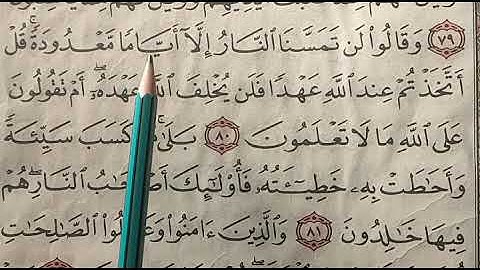 ٧٩ وَقَالُوا۟ لَن تَمَسَّنَا ٱلنَّارُ إِلَّآ أَيَّامًا مَّعْدُودَةً ۚ قُلْ
أَتَّخَذْتُمْ عِندَ ٱللَّهِ عَهْدًا فَلَن يُخْلِفَ ٱللَّهُ عَهْدَهُۥٓ ۖ أَمْ تَقُولُونَ
عَلَى ٱللَّهِ مَا لَا تَعْلَمُونَ ٨٠ بَلَىٰ كَسَبَ سَيِّئَةً
وَأَحَٰطَتْ بِهِۦ خَطِيٓـَٔتُهُۥ فَأُو۟لَٰٓئِكَ أَصْحَٰبُ ٱلنَّارِ ۖ هُمْ
فِيهَا خَٰلِدُونَ ٨١ وَٱلَّذِينَ ءَامَنُوا۟ وَعَمِلُوا۟ ٱلصَّٰلِحَٰتِ